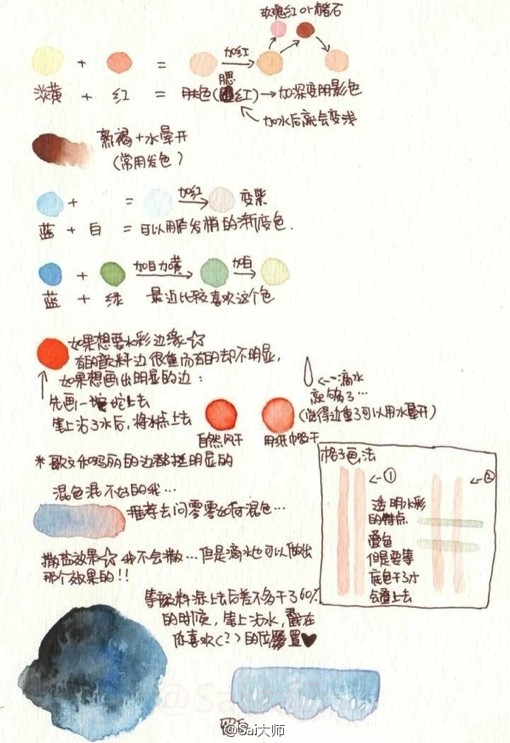 玫瑰红or赭石
加红
淡黄 + 红 = 肤色(腮红)→加深变阴影色
加水后就会变浅
熟褐+水晕开
(常用发色)
+ = 加红 变紫
蓝 + 白 = 可以用作发梢的渐变色.
+ 加白加黄 加白
蓝 + 绿 最近比较喜欢这个色
如果想要水彩边缘☆
有的颜料边很重而有的却不明显,
如果想画出明显的边:
先画一坨坨上去
笔上沾了水后,将水点上去
←--滴水
就够了…
(觉得边重了可以用水晕开)
自然风干
用纸巾吸干
*歌文你吗丽的边都挺明显的
混色混不好的我…
推荐去问零零如何混色…
格子画法
①
②
透明水彩
的特点
叠色
但是要等
底色干了才
会叠上去
撒盐效果☆我不会撒…但是滴水也可以做出
那个效果的!!
等颜料涂上去后差不多干了60%
的时候,笔上沾水,戳在
你喜欢(?)的位置♥
@Sai大师